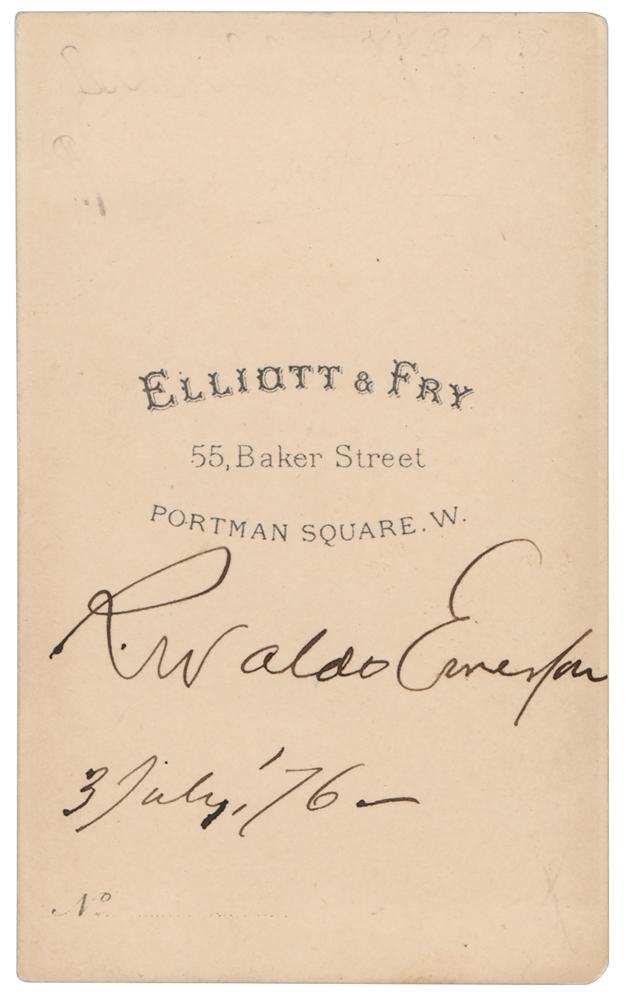 ELLIOTT & FRY
55, Baker Street
PORTMAN SQUARE. W.
R. Waldo Emerson
3 July, '76 —
No